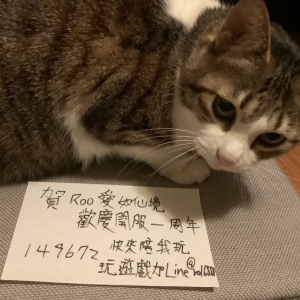 賀 Roo 愛如仙境
歡慶開服一周年
149672 快來陪我玩
玩遊戲加Line@